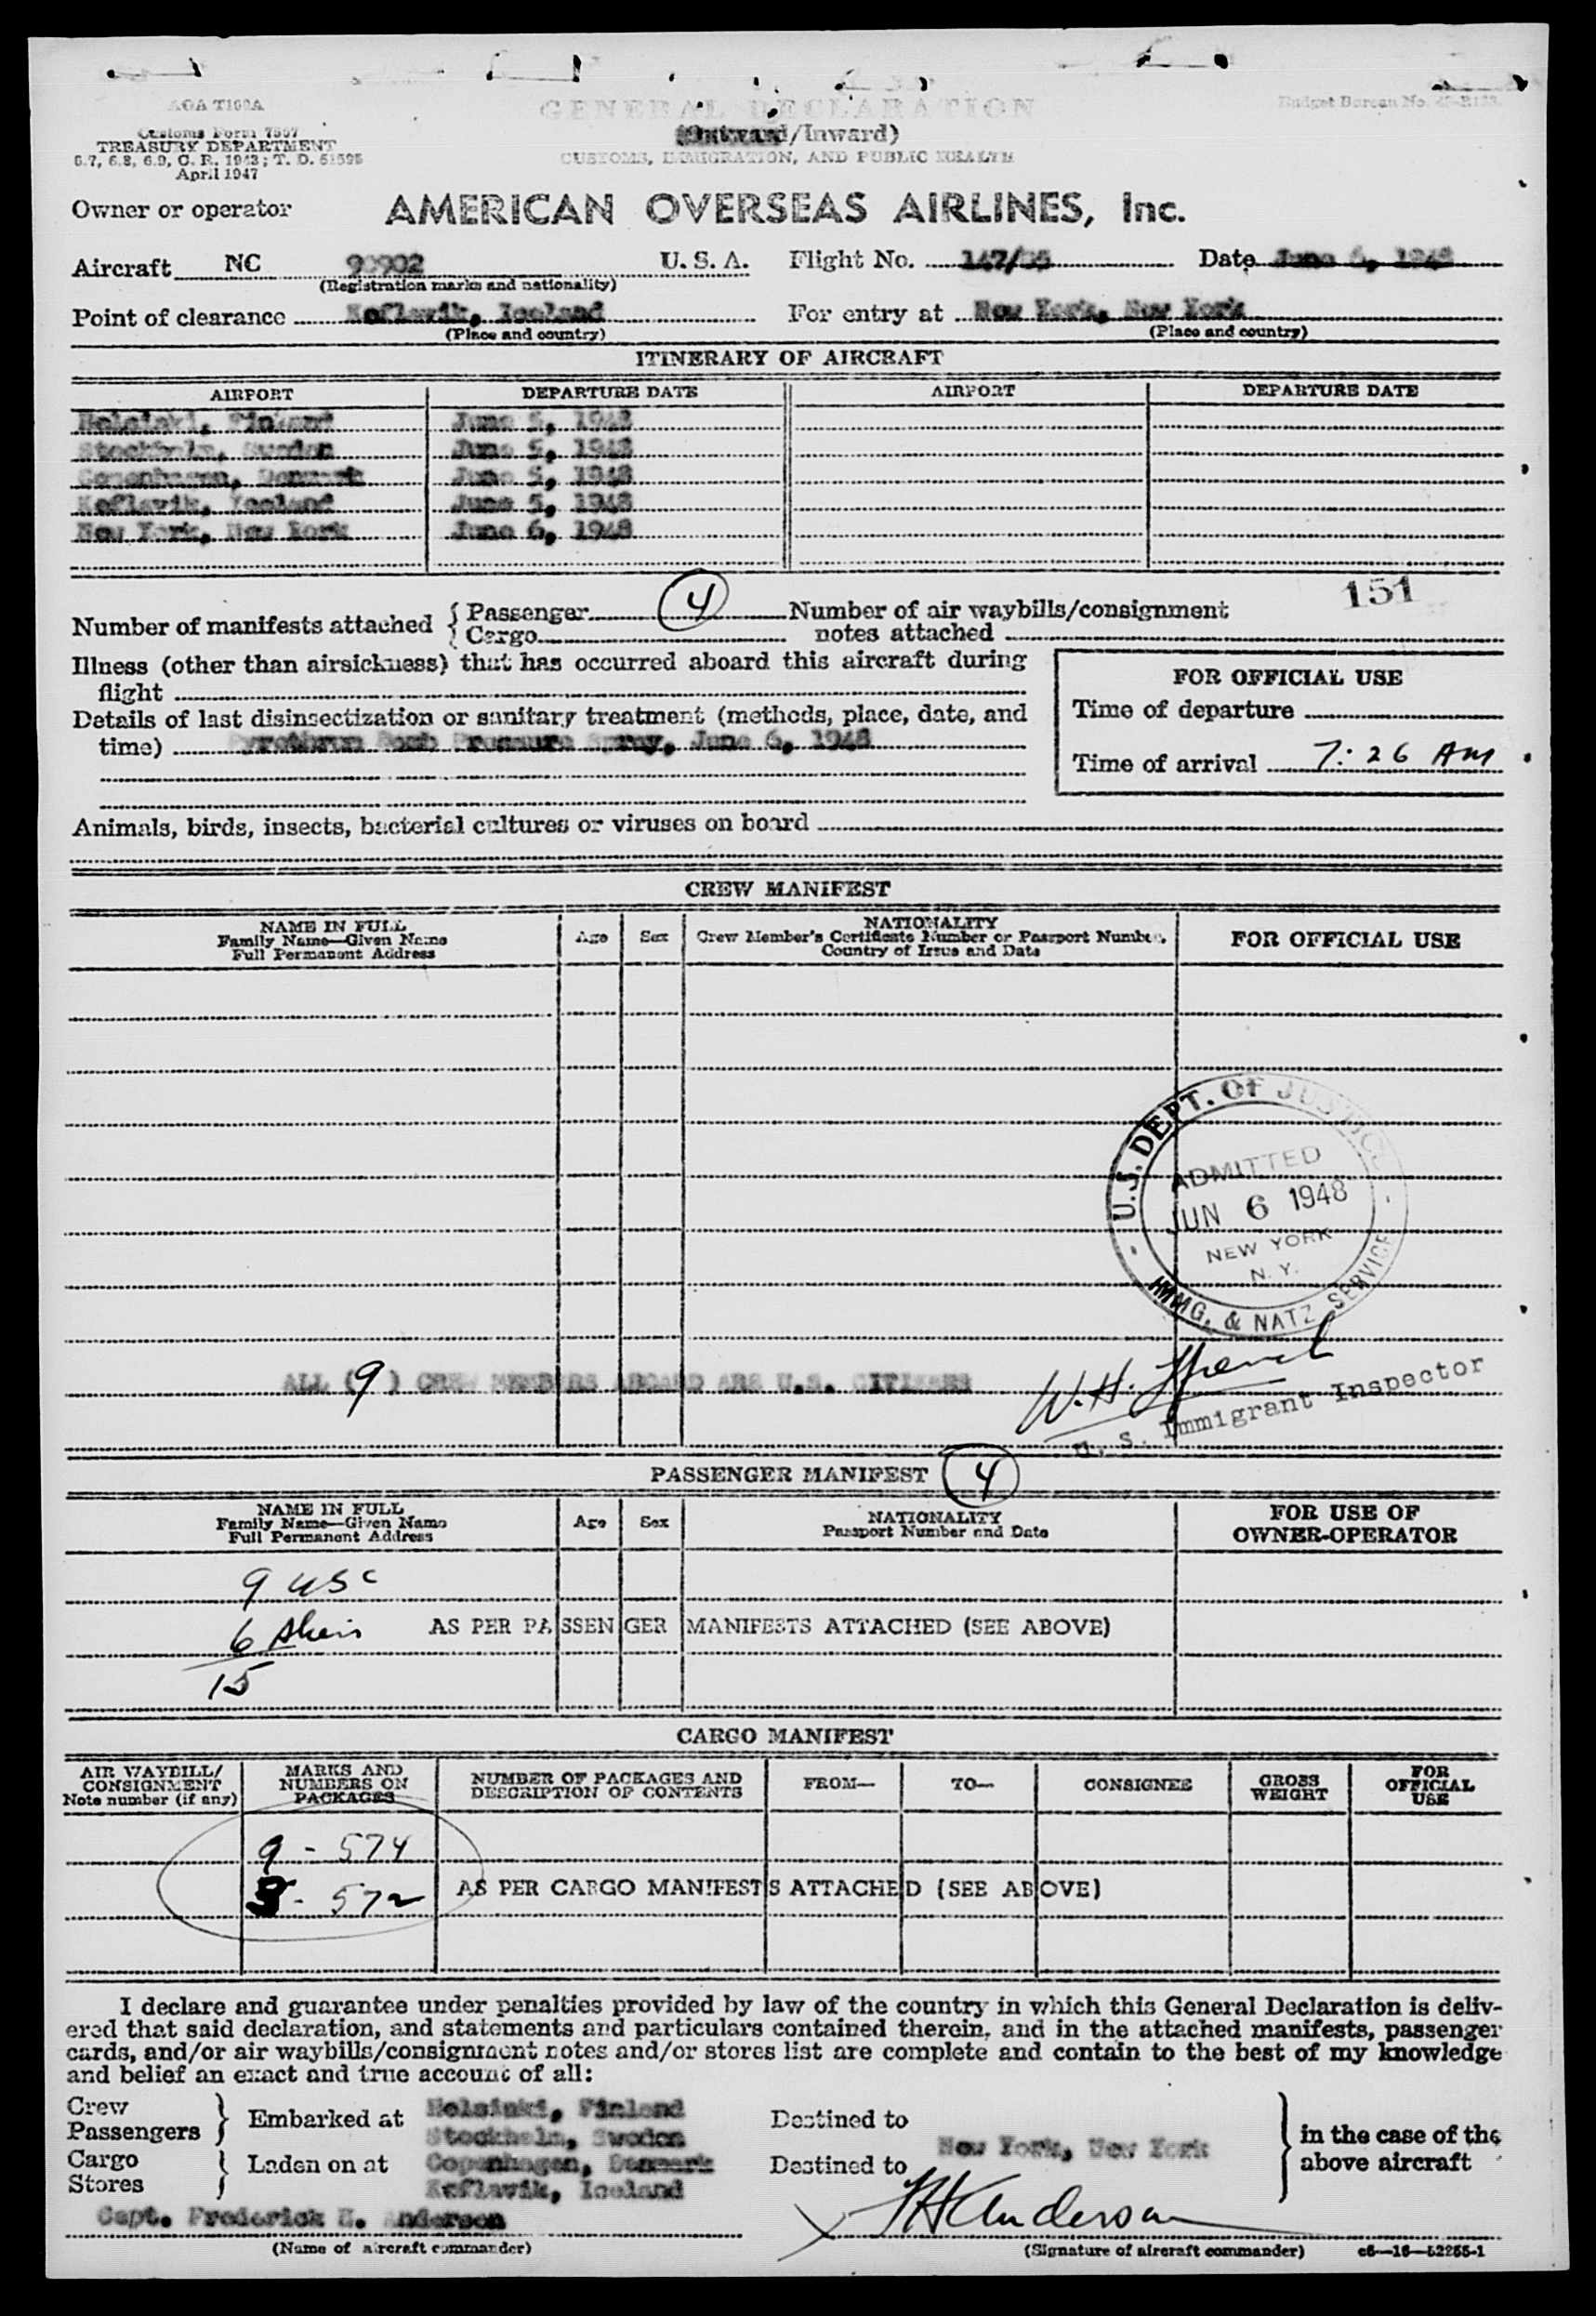 AOA T100A
Customs Form 7507
TREASURY DEPARTMENT
6.7, 6.8, 6.9, C. R. 1943; T. D. 51595
April 1947
GENERAL DECLARATION
(Outward/Inward)
CUSTOMS, IMMIGRATION, AND PUBLIC HEALTH
Budget Bureau No.
Owner or operator AMERICAN OVERSEAS AIRLINES, Inc.
Aircraft NC 90902 U. S. A. Flight No. 147/ Date June 6, 1948
(Registration marks and nationality)
Point of clearance Keflavik, Iceland For entry at New York, New York
(Place and country) (Place and country)
ITINERARY OF AIRCRAFT
AIRPORT DEPARTURE DATE AIRPORT DEPARTURE DATE
Helsinki, Finland June 5, 1948
Stockholm, Sweden June 5, 1948
Copenhagen, Denmark June 5, 1948
Keflavik, Iceland June 5, 1948
New York, New York June 6, 1948
151
Number of manifests attached { Passenger 4 Number of air waybills/consignment
Cargo notes attached
Illness (other than airsickness) that has occurred aboard this aircraft during
flight
Details of last disinsectization or sanitary treatment (methods, place, date, and
time) Pyrethrum Bomb Pressure Spray, June 6, 1948
FOR OFFICIAL USE
Time of departure
Time of arrival 7:26 AM
Animals, birds, insects, bacterial cultures or viruses on board
CREW MANIFEST
NAME IN FULL
Family Name—Given Name
Full Permanent Address
Age
Sex
NATIONALITY
Crew Member's Certificate Number or Passport Number,
Country of Issue and Date
FOR OFFICIAL USE
U.S. DEPT. OF JUSTICE
ADMITTED
JUN 6 1948
NEW YORK
N. Y.
IMMG. & NATZ SERVICE
ALL (9) CREW MEMBERS ABOARD ARE U.S. CITIZENS
W. H.
U. S. Immigrant Inspector
PASSENGER MANIFEST 4
NAME IN FULL
Family Name—Given Name
Full Permanent Address
Age
Sex
NATIONALITY
Passport Number and Date
FOR USE OF
OWNER-OPERATOR
9 USC
6 Alien AS PER PASSENGER MANIFESTS ATTACHED (SEE ABOVE)
15
CARGO MANIFEST
AIR WAYBILL/
CONSIGNMENT
Note number (if any)
MARKS AND
NUMBERS ON
PACKAGES
NUMBER OF PACKAGES AND
DESCRIPTION OF CONTENTS
FROM—
TO—
CONSIGNEE
GROSS
WEIGHT
FOR
OFFICIAL
USE
9 - 574
- 572 AS PER CARGO MANIFESTS ATTACHED (SEE ABOVE)
I declare and guarantee under penalties provided by law of the country in which this General Declaration is deliv-
ered that said declaration, and statements and particulars contained therein, and in the attached manifests, passenger
cards, and/or air waybills/consignment notes and/or stores list are complete and contain to the best of my knowledge
and belief an exact and true account of all:
Crew
Passengers } Embarked at
Cargo
Stores } Laden on at
Helsinki, Finland
Stockholm, Sweden
Copenhagen, Denmark
Keflavik, Iceland
Destined to
Destined to New York, New York
in the case of the
above aircraft
Capt. Frederick H. Anderson
(Name of aircraft commander)
FH Anderson
(Signature of aircraft commander) c6—16—52255-1